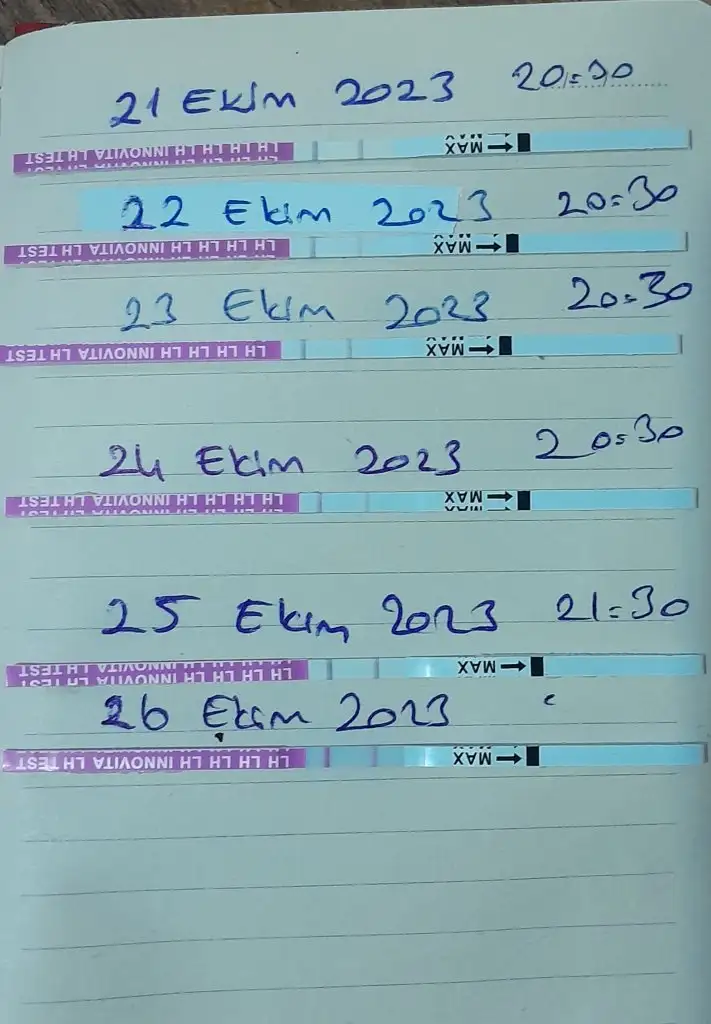 21 Ekim 2023 20:30
LH LH LH LH INNOVITA LH TEST MAX
22 Ekim 2023 20:30
LH LH LH LH INNOVITA LH TEST MAX
23 Ekim 2023 20:30
LH LH LH LH INNOVITA LH TEST MAX
24 Ekim 2023 20:30
LH LH LH LH INNOVITA LH TEST MAX
25 Ekim 2023 21:30
LH LH LH LH INNOVITA LH TEST MAX
26 Ekim 2023
LH LH LH LH INNOVITA LH TEST MAX